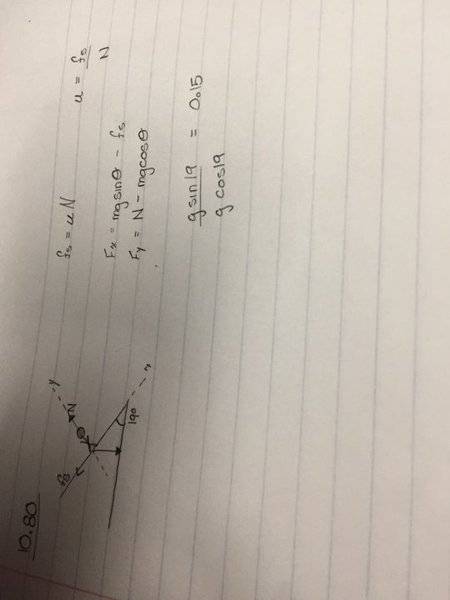 10.80
fs
N
y
θ
19°
x
fs = uN
u = fs / N
Fx = mgsinθ - fs
Fy = N - mgcosθ
g sin19 / g cos19 = 0.15